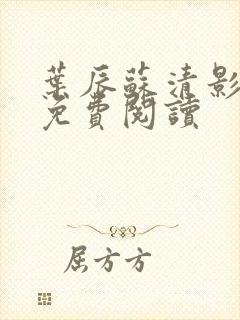 葉辰蘇清影
免費閱讀
屈方方